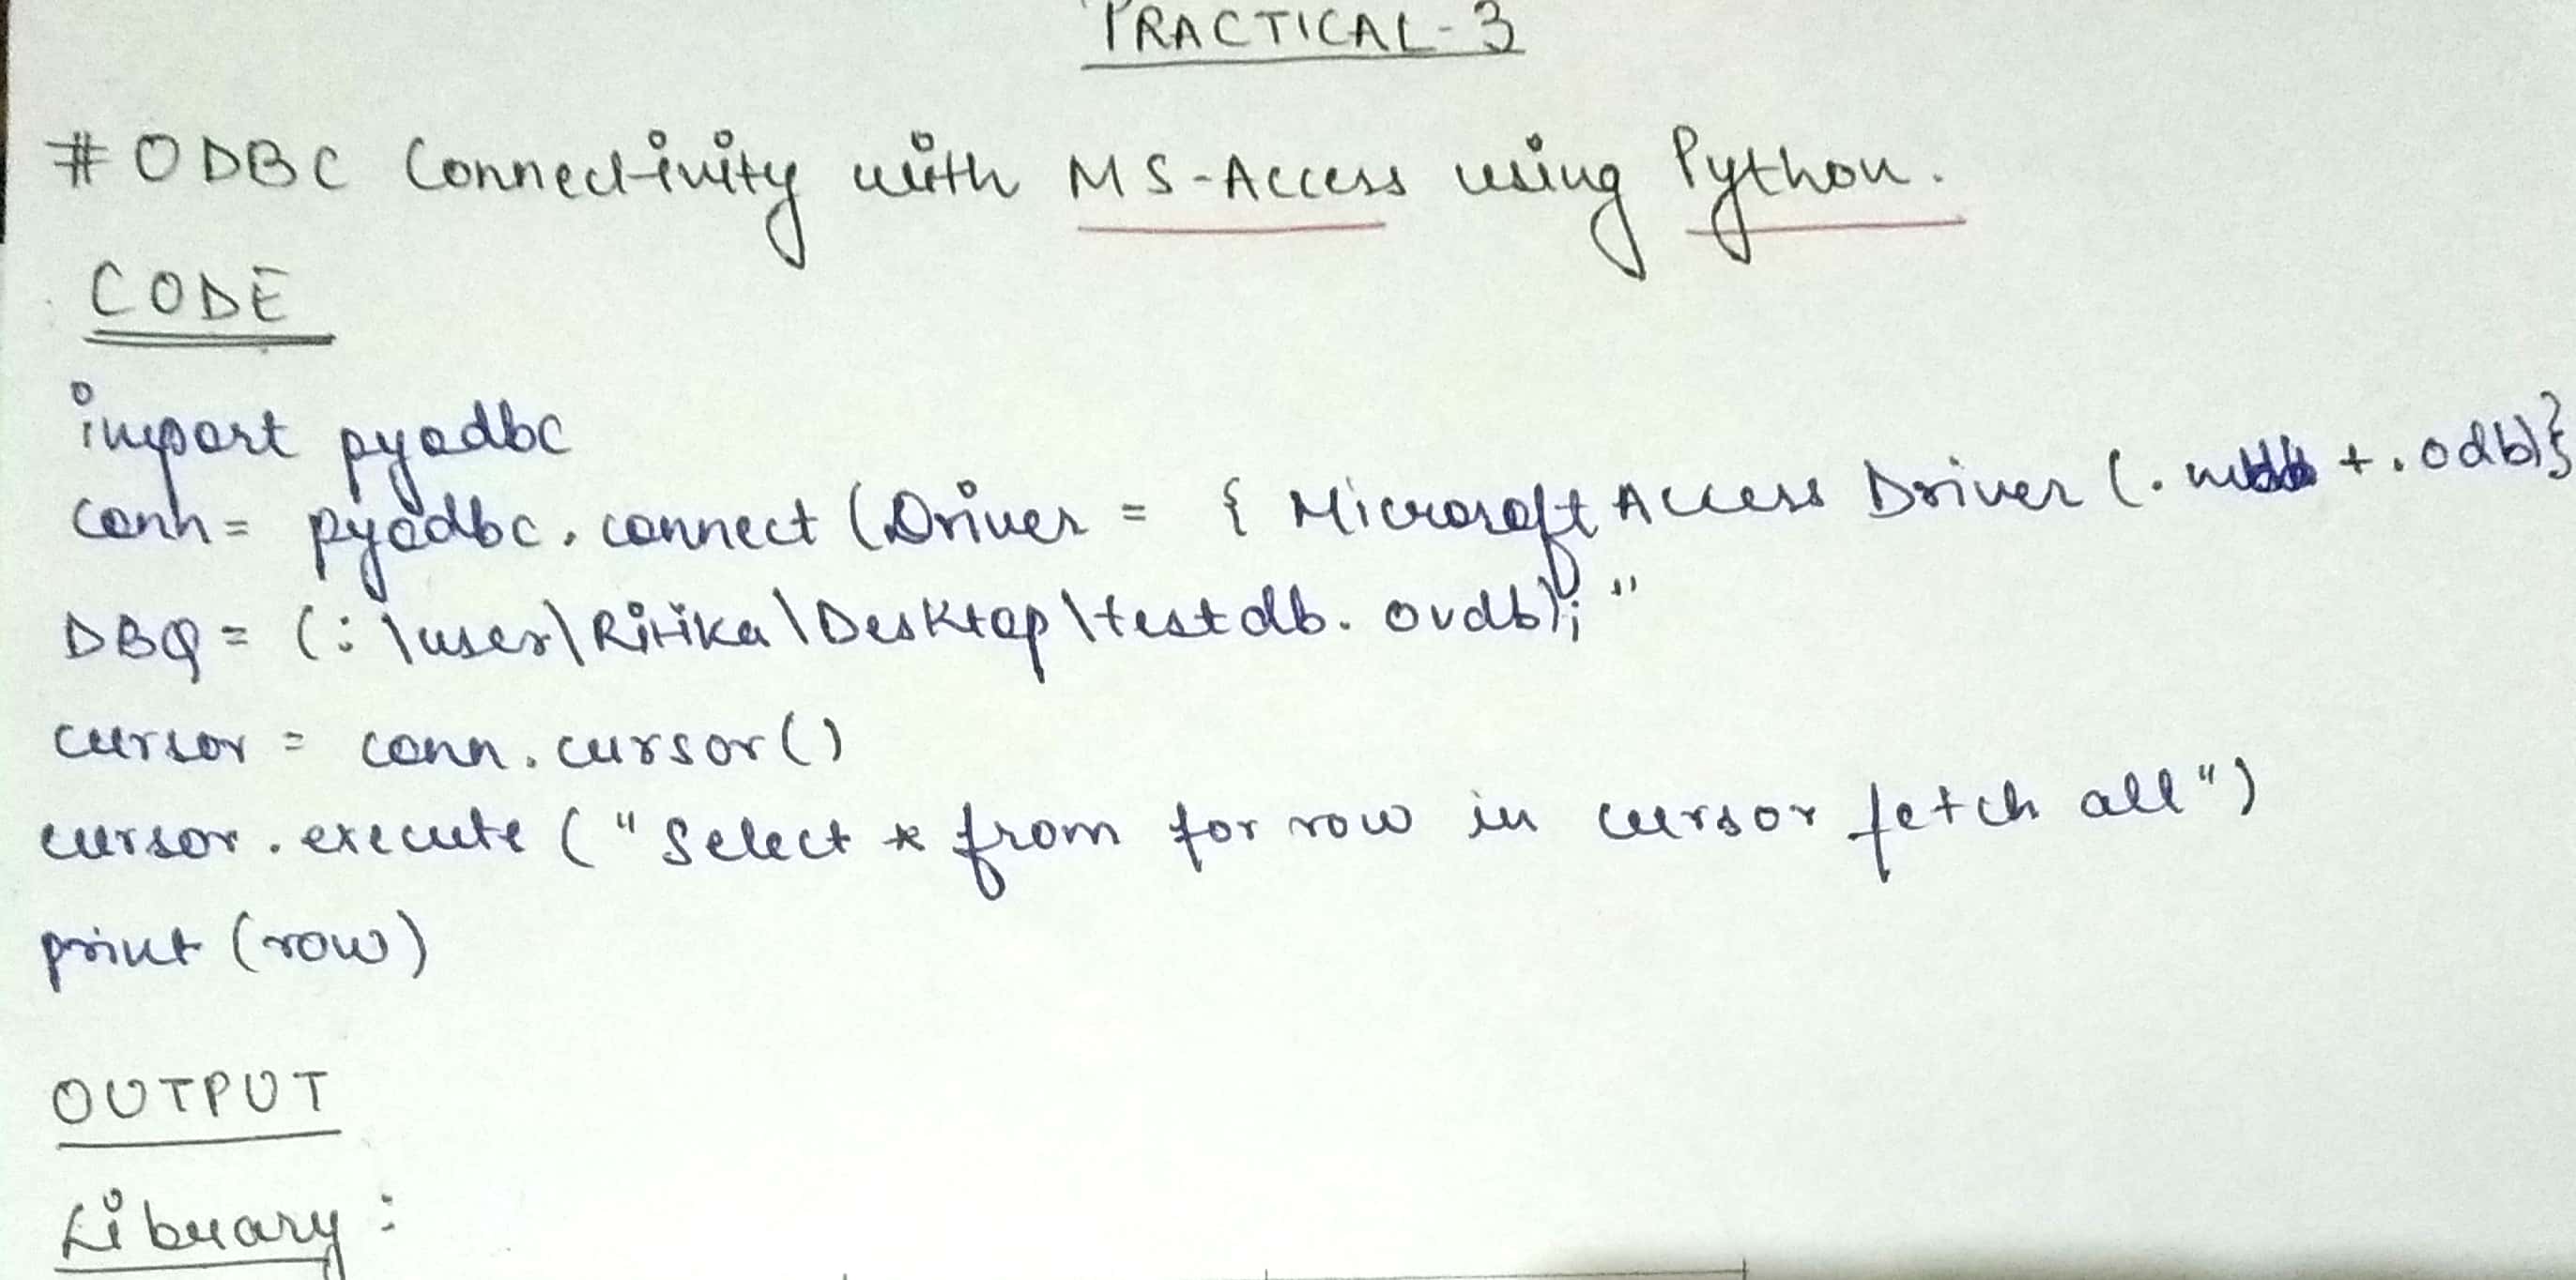 PRACTICAL-3
# ODBC Connectivity with MS-Access using Python.
CODE
import pyodbc
conn= pyodbc.connect (Driver = { Microsoft Access Driver (. + .odb)}
DBQ = (:\user\Ritika\Desktop\testdb. ovdb);"
cursor = conn.cursor()
cursor.execute ("Select * from for row in cursor fetch all")
print (row)
OUTPUT
Library: